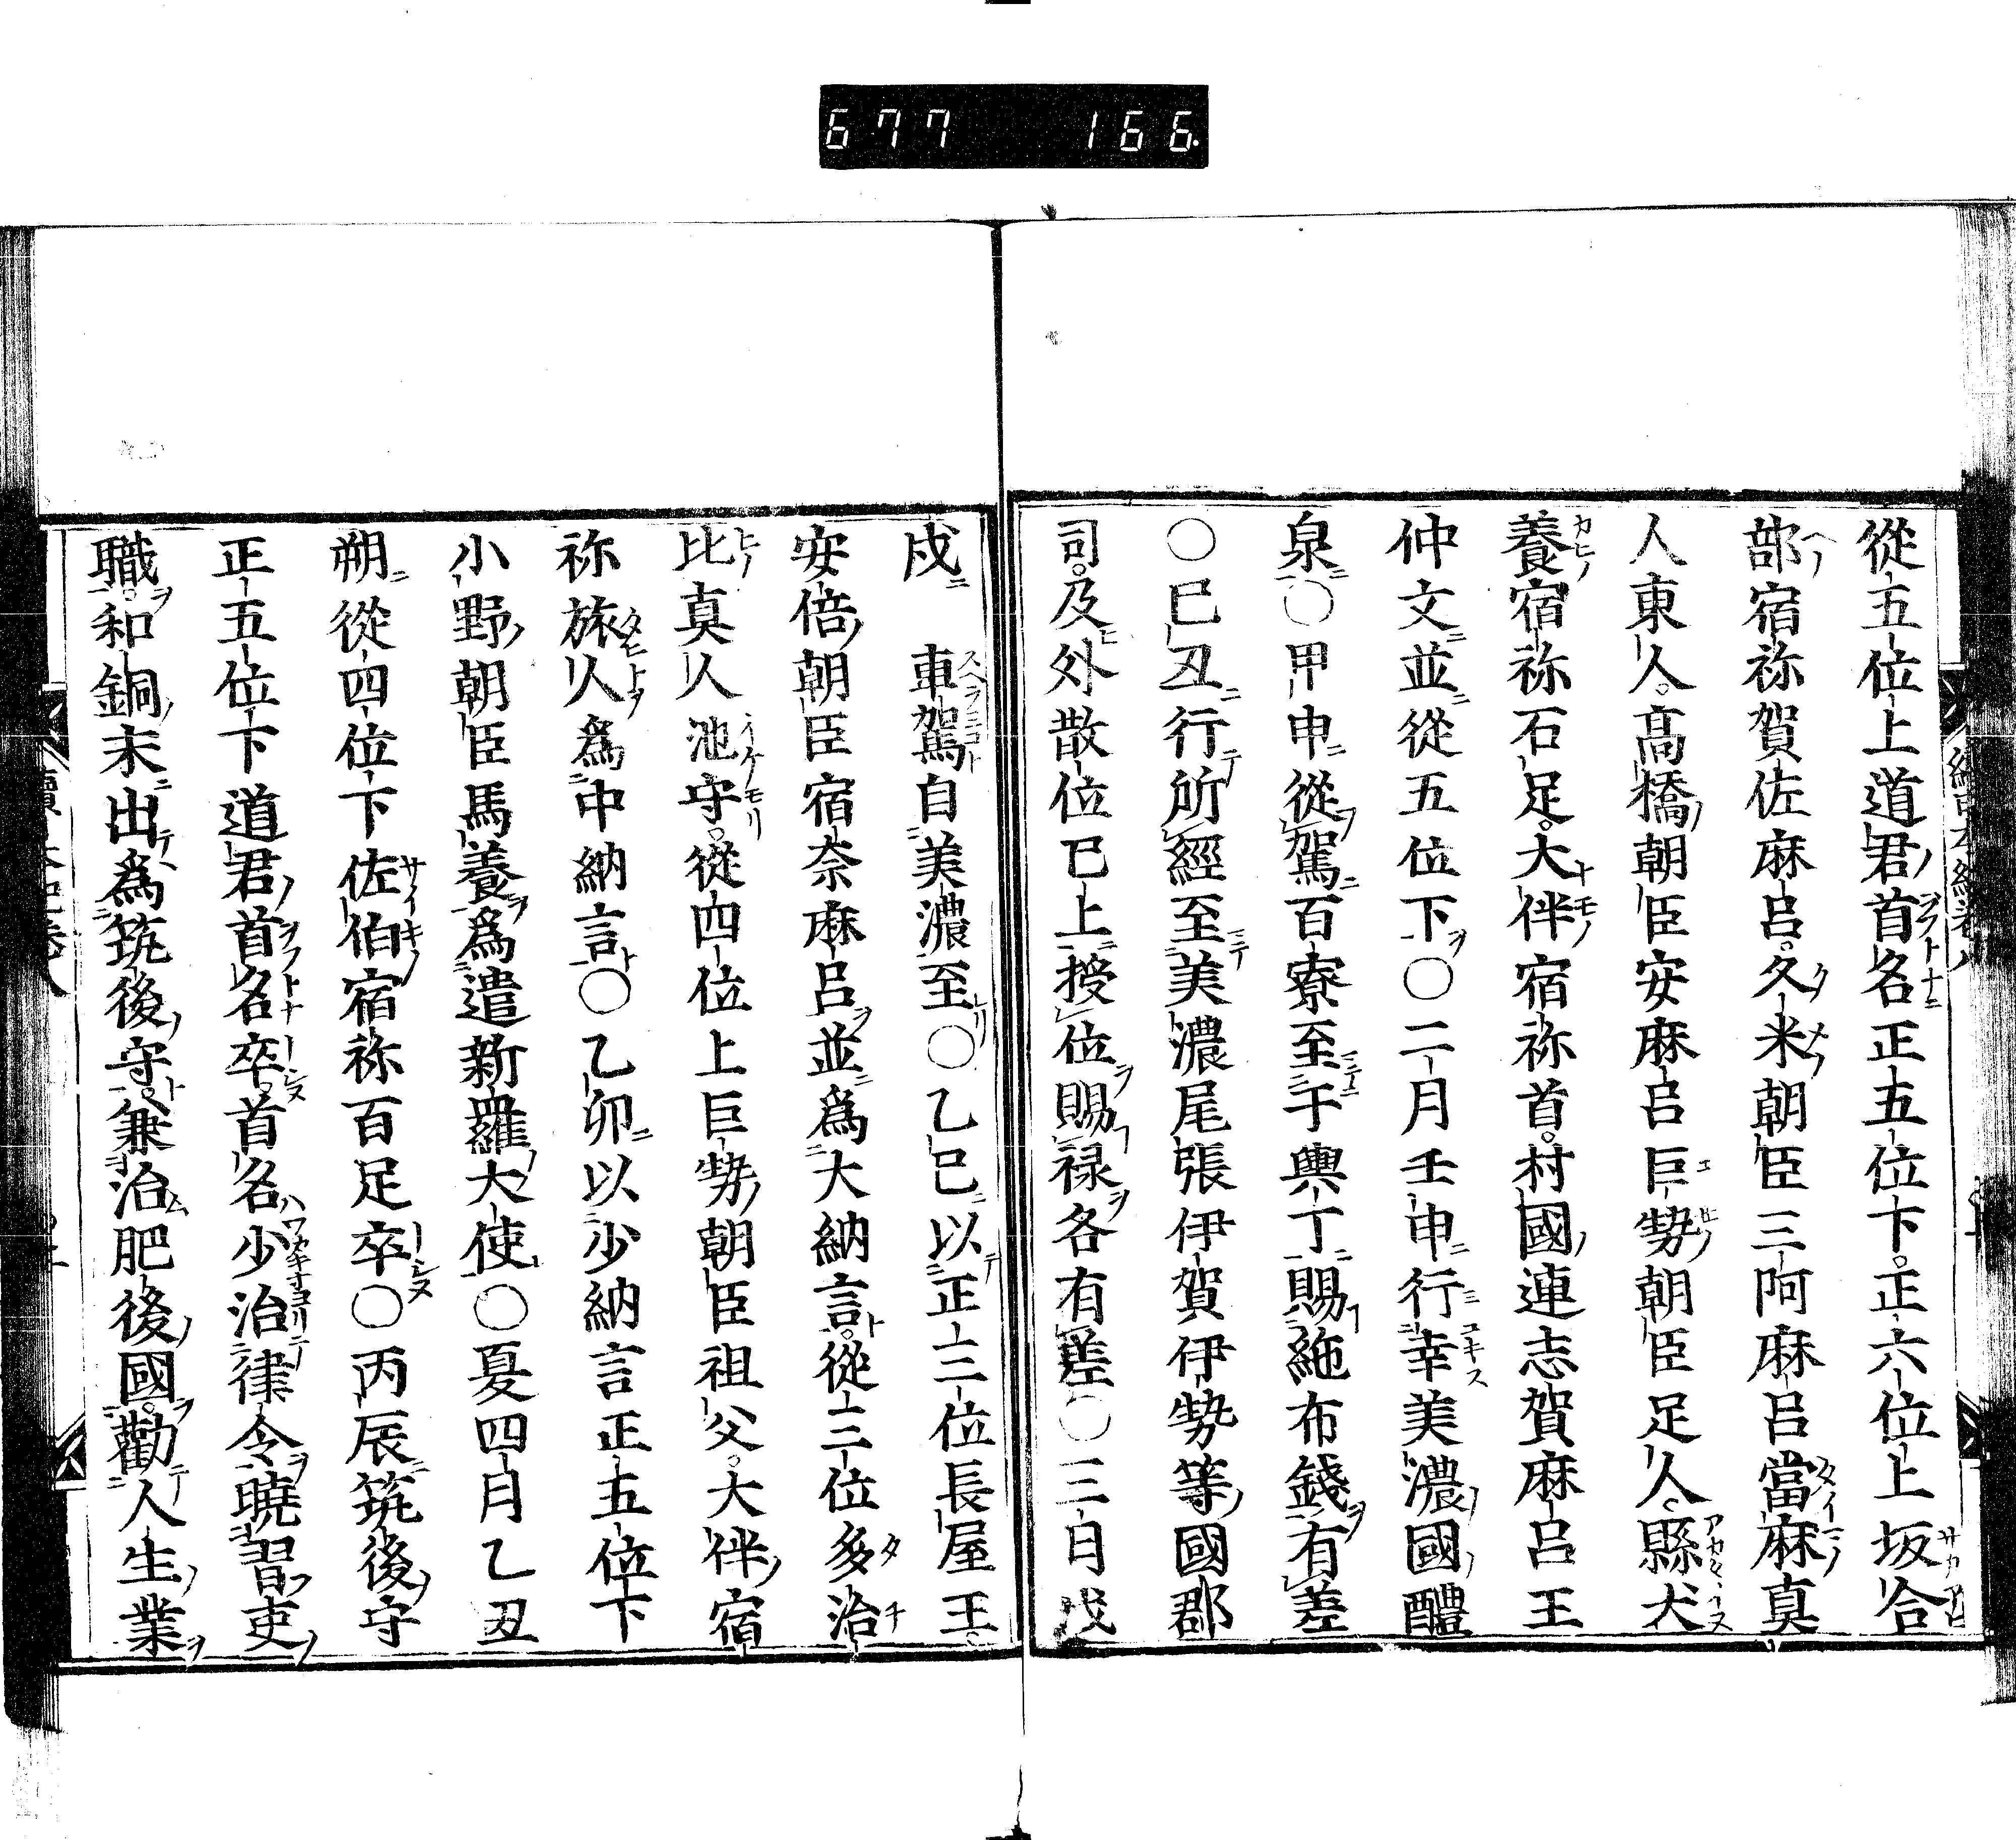 677 166.
從五位上道君首名正五位下。正六位上坂合
部宿祢賀佐麻呂。久米朝臣三阿麻呂當麻真
人東人。髙橋朝臣安麻呂巨勢朝臣足人。縣犬
養宿祢石足。大伴宿祢首。村國連志賀麻呂王
仲文並從五位下〇二月壬申行幸美濃國醴
泉〇甲申從駕百寮至于輿丁賜絁布錢有差
〇巳丑行所經至美濃尾張伊賀伊勢等國郡
司。及外散位巳上授位賜禄各有差〇三月戊
戍 車駕自美濃至〇乙巳以正三位長屋王。
安倍朝臣宿奈麻呂並爲大納言。從三位多治
比真人池守。從四位上巨勢朝臣祖父。大伴宿
祢旅人爲中納言〇乙卯以少納言正五位下
小野朝臣馬養爲遣新羅大使〇夏四月乙丑
朔從四位下佐伯宿祢百足卒〇丙辰筑後守
正五位下道君首名卒。首名少治律令曉習吏
職。和銅末出爲筑後守。兼治肥後國。勸人生業